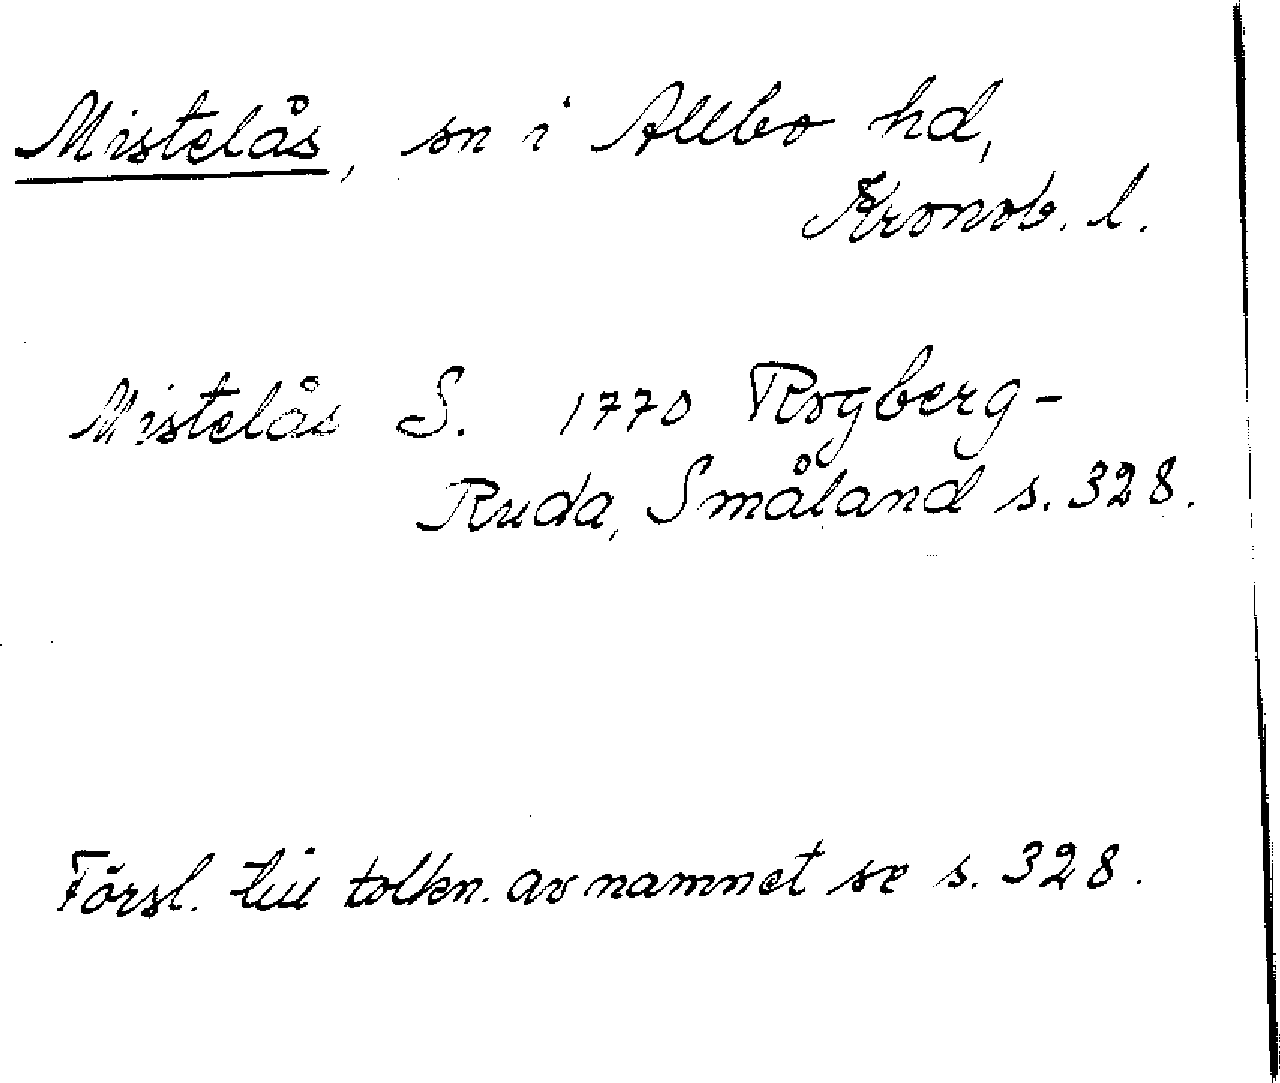 Mistelås, sn i Allbo hd,
Kronob. l.
Mistelås S. 1770 Rogberg-
Ruda, Småland s. 328.
Försl. till tolkn. av namnet se s. 328.